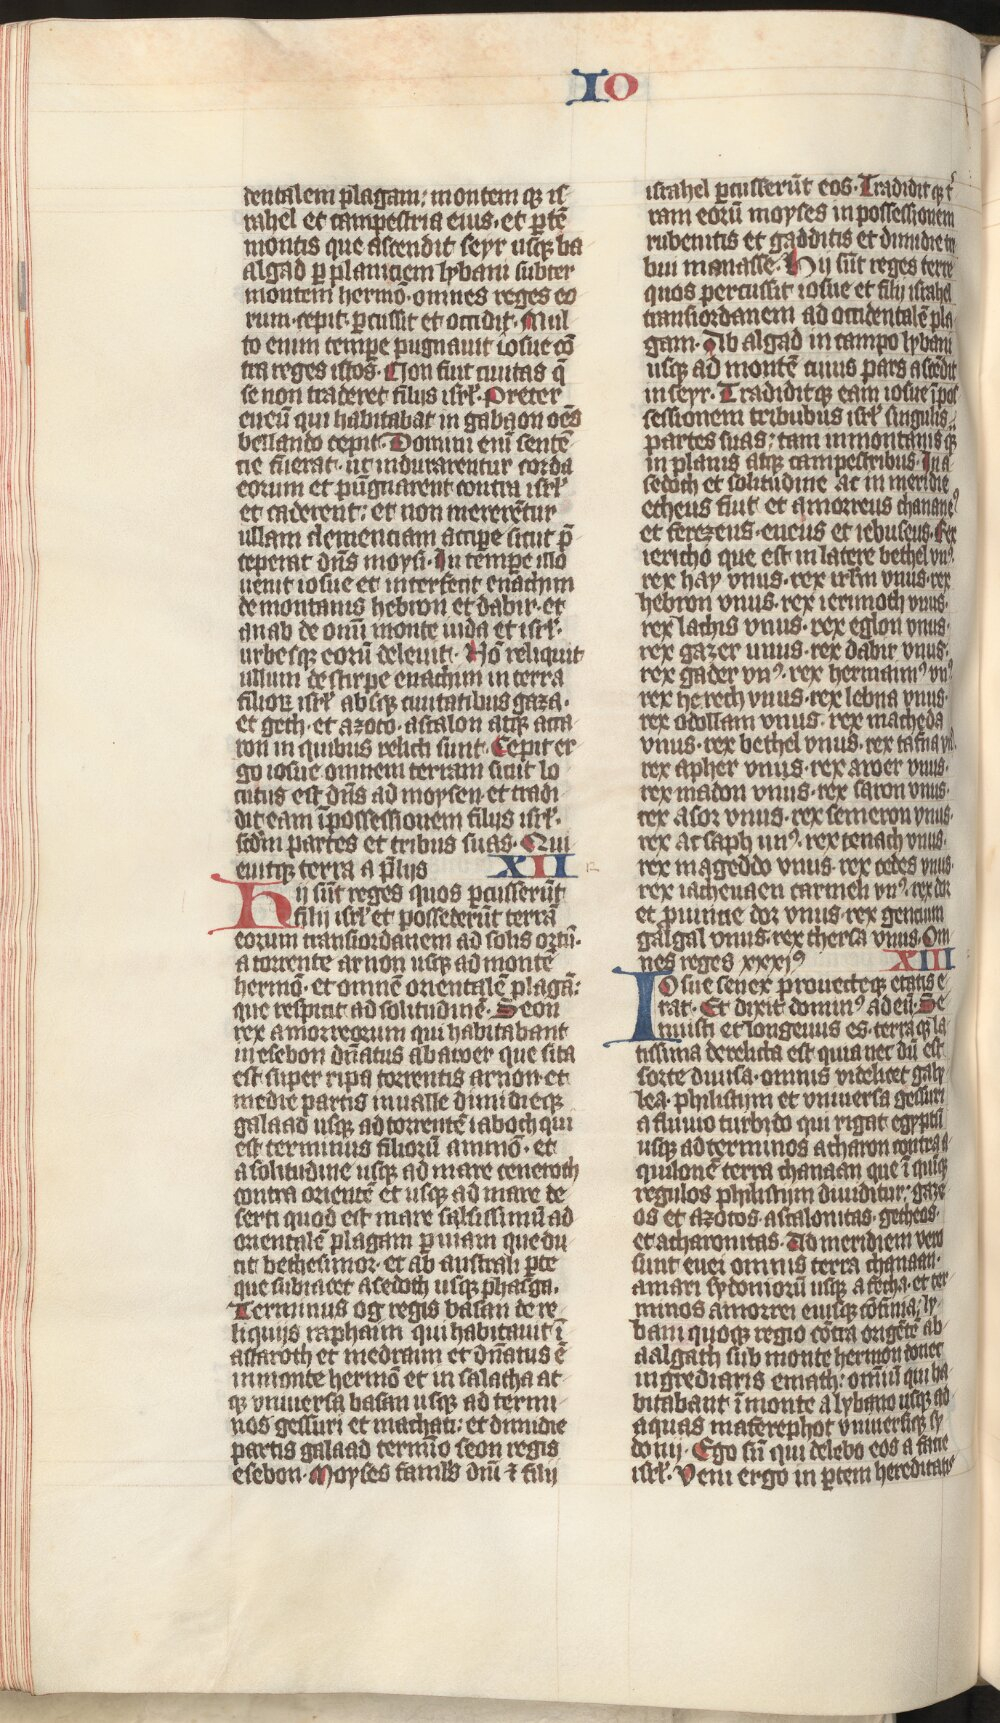 IO
dentalem plagam: montem qꝫ is
rahel et campestria eius· et ꝑtē
montis que ascendit seyr usqꝫ ba
algad ꝑ planitiem lybani subter
montem hermō· omnes reges eo
rum· cepit· ꝑcussit et occidit· Mul
to enim tempe pugnauit iosue cō
tra reges istos· Non fuit ciuitas q̄
se non traderet filijs isrl̓· Preter
eueū qui habitabat in gabaon oēs
bellando cepit· Domini eni sentē
tie fuerat· ut indurarentur corda
eorum et pūgnarent contra isrl̓
et caderent: et non mererētur
ullam clementiam accipe sicut p̄
ceperat dn̄s moysi· In tempe illo
uenit iosue et interfecit enachim
de montanis hebron et dabir· et
anab de omī monte iuda et isrl̓·
urbesqꝫ eorū deleuit· Nō reliquit
ullum de stirpe enachim in terra
filioꝝ isrl̓ absqꝫ ciuitatibus gaza·
et geth· et azoto· ascalon atqꝫ acca
ron in quibus relicti sunt· Cepit er
go iosue omnem terram sicut lo
cutus est dn̄s ad moysen· et tradi
dit eam ī possessionem filijs isrl̓·
scdm partes et tribus suas· Qui
euitqꝫ terra a p̄lijs XII
Hij sūt reges quos ꝑcusserūt
filij isrl̓ et possederūt terrā
eorum transiordanem ad solis ortū·
a torrente arnon usqꝫ ad montē
hermō· et omnē orientalē plagā:
que respicit ad solitudinē· Seon
rex amorreorum qui habitabant
in esebon dn̄atus ab aroer que sita
est super ripā torrentis arnon· et
medie partis in ualle dimidieqꝫ
galaad usqꝫ ad torrentē iaboch qui
est terminus filiorū ammō· et
a solitudine usqꝫ ad mare ceneroth
contra orientē et usqꝫ ad mare de
serti quod est mare salsissimū ad
orientalē plagam ꝑ uiam que du
cit bethesimoꝛ· et ab australi ꝑte
que subiacet asedoth usqꝫ phasga·
Terminus og regis basan de re
liquijs raphaim qui habitauit ī
astaroth et in edraim et dn̄atus ē
in monte hermō et in salacha at
qꝫ vniuersa basan usqꝫ ad termi
nos gessuri et machati: et dimidie
partis galaad termio seon regis
esebon· Moyses famls dn̄i ⁊ filij
israhel ꝑcusserūt eos· Tradidit qꝫ t̓
ram eorū moyses in possessionem
rubenitis et gadditis et dimidie tri
bui manasse· Hij sūt reges terre
quos percussit iosue et filij israhel
transiordanem ad occidentalē pla
gam· Ab algad in campo lybani
usqꝫ ad montē cuius pars ascēdit
in seyr· Tradiditqꝫ eam iosue ī pos
sessionem tribubus isrl̓ singulis
partes suas: tam in montanis qꝫ
in planis atqꝫ campestribus· In a
sedoth et solitudine ac in meridie
etheus fuit et amorreus chananeꝰ
et ferezeus· eueus et iebuseus· Rex
iericho que est in latere bethel vnꝰ·
rex hay vnus· rex irl̓m vnus· rex
hebron vnus· rex ierimoth vnus·
rex lachis vnus· rex eglon vnus·
rex gazer unus· rex dabir vnus·
rex gader vnꝰ· rex hermamꝰ vnꝰ
rex herech vnus· rex lebna vnus·
rex odollam vnus· rex maceda
vnus· rex bethel vnus· rex tafna vnꝰ·
rex apher vnus· rex aroer vnus·
rex madon vnus· rex saron vnus·
rex asor vnus· rex semeron vnus·
rex acsaph unꝰ· rex tenach vnus·
rex mageddo vnus· rex cedes vnus·
rex iachenaen carmeli vnꝰ· rex dor
et ꝓuincie dor vnus· rex gencium
galgal vnus· rex thersa vnus· Om
nes reges xxxjꝰ XIII
Iosue senex prouecteqꝫ etatis e
rat· Et dixit dominꝰ ad eū· Se
nuisti et longeuus es· terraqꝫ la
tissima derelicta est que nec dū est
sorte diuisa· omnis videlicet galy
lea· philistijm et vniuersa gessuri
a fluuio turbido qui rigat egyptū
usqꝫ ad terminos acharon contra a
quilonē terra chanaan que ī quiqꝫ
regulos philistijm diuiditur: gaze
os et azotos· ascalonitas· getheos·
et acharonitas· Ad meridiem vero
sunt euei omnis terra chanaan·
amari sydoniorū usqꝫ afecha· et ter
minos amorrei eiusqꝫ cōfinia: ly
bani quoqꝫ regio cōtra oriētē ab
aalgath sub monte hermon donec
ingrediaris emath: omīū qui ha
bitabant ī monte a lybano usqꝫ ad
aquas maserephot vniuersiqꝫ sy
donij· Ego sū qui delebo eos a facie
isrl̓· Veni ergo in ꝑtem hereditatis